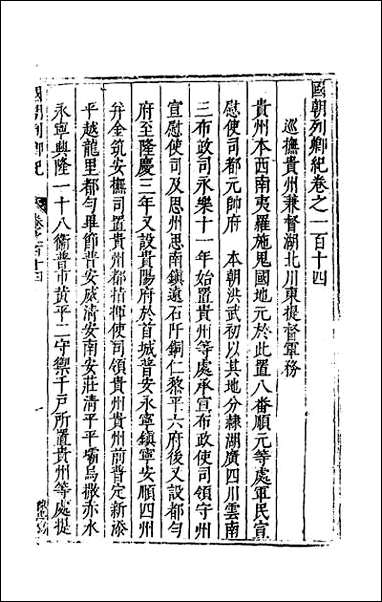 國朝列卿紀卷之一百十四
巡撫貴州兼督湖北川東提督軍務
貴州本西南夷羅施鬼國地元於此置八番順元等處軍民宣
慰使司都元帥府　本朝洪武初以其地分隷湖廣四川雲南
三布政司永樂十一年始置貴州等處承宣布政使司領守州
宣慰使司及思州思南鎮遠石阡銅仁黎平六府後又設都勻
府至隆慶三年又設貴陽府於首城普安永寧鎮寧安順四州
并金筑安撫司置貴州都指揮使司領貴州貴州前普定新添
平越龍里都勻畢節普安威清安南安莊清平平壩烏撒赤水
永寧興隆一十八衛普市黄平二守禦千戸所置貴州等處提
國朝列卿紀